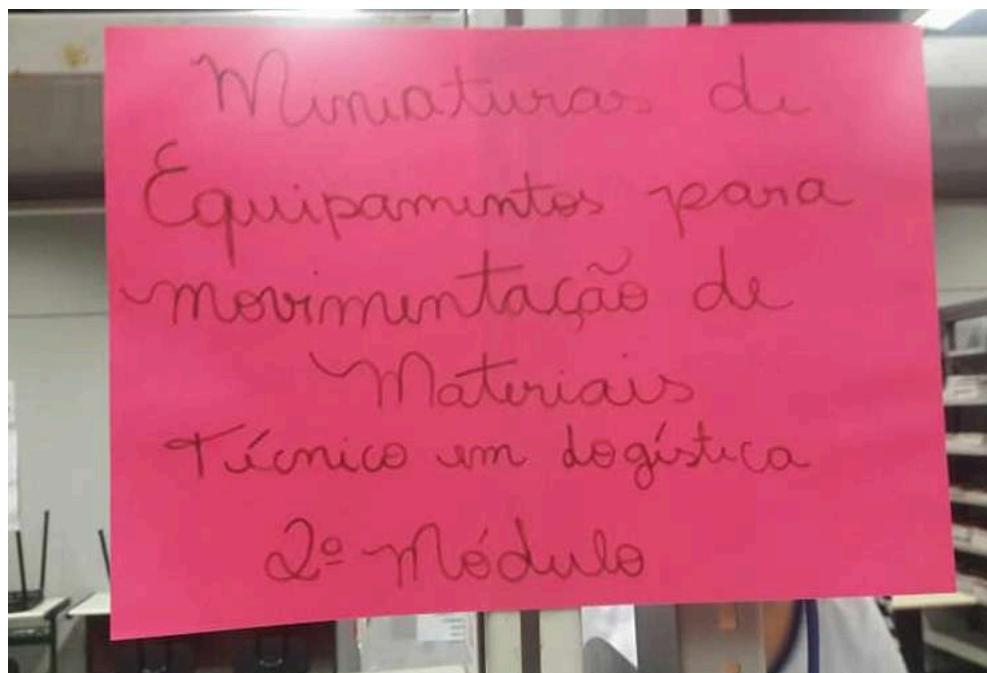 Miniaturas de
Equipamentos para
movimentação de
Materiais
Técnico em Logística
2º Módulo